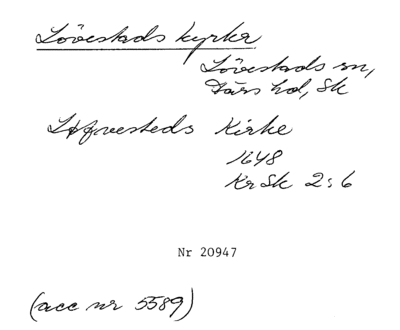 Lövestads kyrka
Lövestads sn,
Färs hd, Sk
Löfvesteds Kirke
1648
Kr Sk 2:6
Nr 20947
(acc nr 5589)